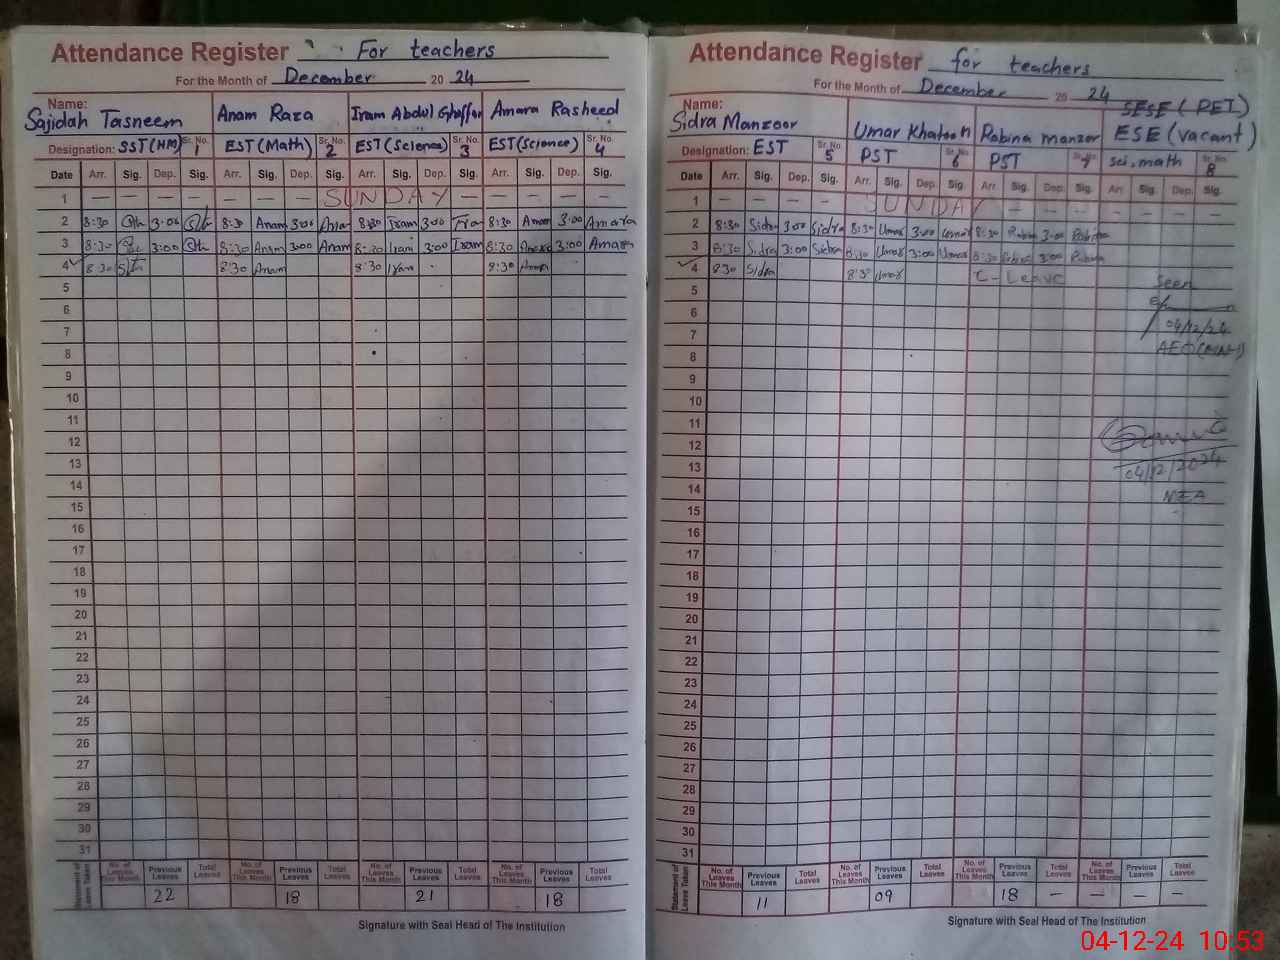 Attendance Register For teachers
For the Month of December 20 24
Name:
Sajidah Tasneem Anam Raza Iram Abdul Ghaffar Amara Rasheed
Designation: SST(HM) Sr. No. 1 EST(Math) Sr. No. 2 EST(Science) Sr. No. 3 EST(Science) Sr. No. 4
Date Arr. Sig. Dep. Sig. Arr. Sig. Dep. Sig. Arr. Sig. Dep. Sig. Arr. Sig. Dep. Sig.
1 — — — SUNDAY — — — —
2 8:30 3:00 8:30 Anam 3:00 Anam 8:30 Iram 3:00 Iram 8:30 Amara 3:00 Amara
3 8:30 3:00 8:30 Anam 3:00 Anam 8:30 Iram 3:00 Iram 8:30 Amara 3:00 Amara
4 8:30 8:30 Anam 8:30 Iram 8:30 Amara
5
6
7
8
9
10
11
12
13
14
15
16
17
18
19
20
21
22
23
24
25
26
27
28
29
30
31
Statement of Leaves Taken No. of Leaves This Month Previous Leaves Total Leaves No. of Leaves This Month Previous Leaves Total Leaves No. of Leaves This Month Previous Leaves Total Leaves No. of Leaves This Month Previous Leaves Total Leaves
22 18 21 18
Signature with Seal Head of The Institution
Attendance Register for teachers
For the Month of December 20 24
Name: SESE (PET)
Sidra Manzoor Umar Khatoon Rabina manzor ESE (vacant)
Designation: EST Sr. No. 5 PST Sr. No. 6 PST Sr. No. 7 sci.math Sr. No. 8
Date Arr. Sig. Dep. Sig. Arr. Sig. Dep. Sig. Arr. Sig. Dep. Sig. Arr. Sig. Dep. Sig.
1 — — — — SUNDAY — — — —
2 8:30 Sidra 3:00 Sidra 8:30 Umar 3:00 Umar 8:30 Rabina 3:00 Rabina
3 8:30 Sidra 3:00 Sidra 8:30 Umar 3:00 Umar 8:30 Rabina 3:00 Rabina
4 8:30 Sidra 8:30 Umar C-Leave
5 Seen
6
7 04/12/24
8 AEO
9
10
11
12
13 04/12/2024
14
15
16
17
18
19
20
21
22
23
24
25
26
27
28
29
30
31
Statement of Leaves Taken No. of Leaves This Month Previous Leaves Total Leaves No. of Leaves This Month Previous Leaves Total Leaves No. of Leaves This Month Previous Leaves Total Leaves No. of Leaves This Month Previous Leaves Total Leaves
11 09 18 — — — —
Signature with Seal Head of The Institution
04-12-24 10:53